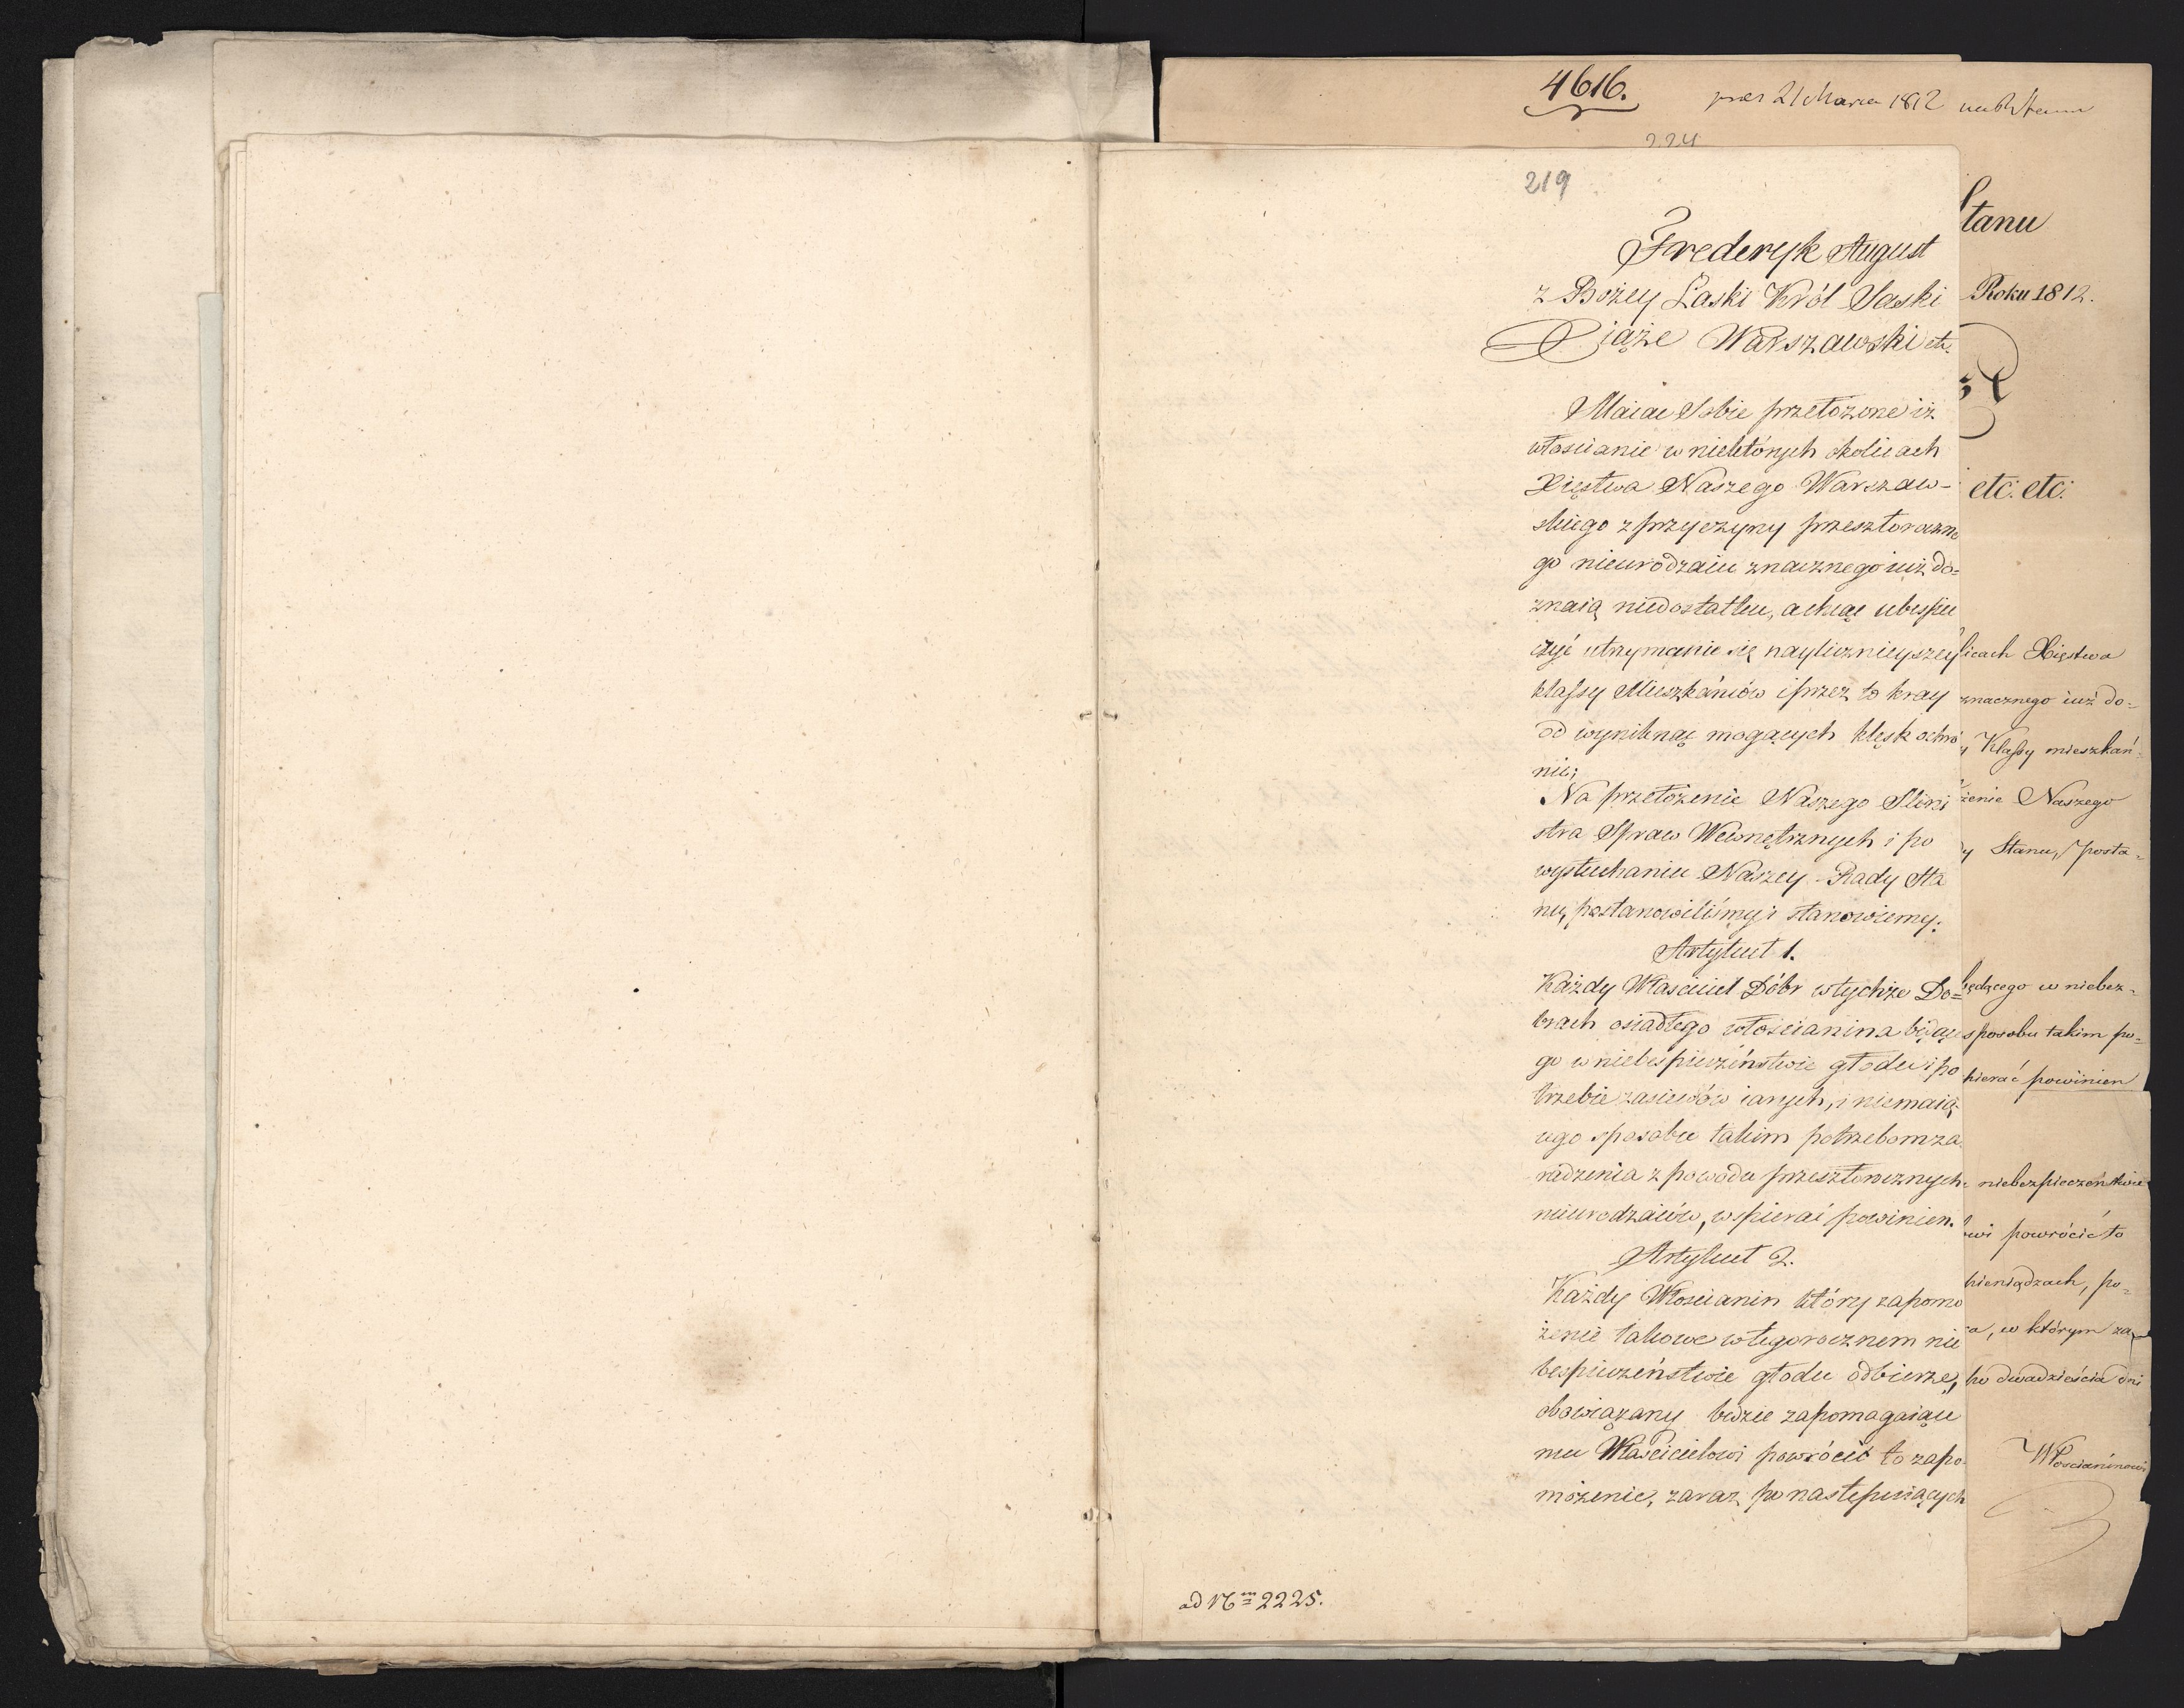 4616.
21 Marca 1812
224
219
Frederyk August
z Bożey Łaski Król Saski
Xiąże Warszawski etc.
Maiąc Sobie przełożone iż
włościanie w niektórych okolicach
Xięstwa Naszego Warszaw-
skiego z przyczyny przeszłoroczne
go nieurodzaiu znacznego iuż do=
znaią niedostatku, a chcąc ubespie
czyć utrzymanie się naylicznieyszey
klassy Mieszkańców i przez to kray
od wyniknąć mogących klęsk ochro
nić;
Na przełożenie Naszego Mini
stra Spraw Wewnętrznych i po
wysłuchaniu Naszey Rady Sta
nu, postanowiliśmy i stanowiemy:
Artykuł 1.
Każdy Właściciel Dóbr w tychże Do=
brach osiadłego włościanina będące
go w niebespieczeństwie głodu i po
trzebie zasiewów iarych, i niemaią
cego sposobu takim potrzebom za
radzenia z powodu przeszłorocznych
nieurodzaiów, wspierać powinien.
Artykuł 2.
Każdy Włościanin który zapomo
żenie takowe w tegorocznem nie
bespieczeństwie głodu odbierze,
obowiązany będzie zapomagaiące
mu Właścicielowi powrócić to zapo
możenie, zaraz po następuiących
ad Nm 2225.
Stanu
Roku 1812.
etc. etc.
licach Xięstwa
znacznego iuż do=
y Klassy mieszkań
żenie Naszego
y Stanu, posta=
będącego w niebez=
sposobu takim po=
pierać powinien
niebezpieczeństwie
owi powrócić to
pieniądzach, po=
a, w którym za
po dwadzieścia dni
Włościaninowi